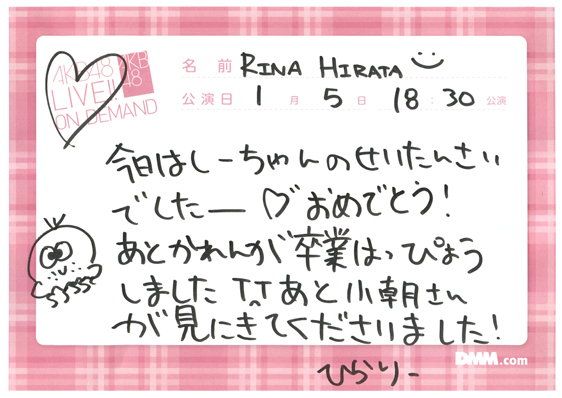 AKB48 LIVE!! ON DEMAND
AKB48
名前 RINA HIRATA
公演日 1月 5日 18:30 公演
今日はしーちゃんのせいたんさい
でしたー♡おめでとう!
あとかれんが卒業はっぴょう
しました TT あと小朝さん
が見にきてくださいました!
ひらりー
DMM.com